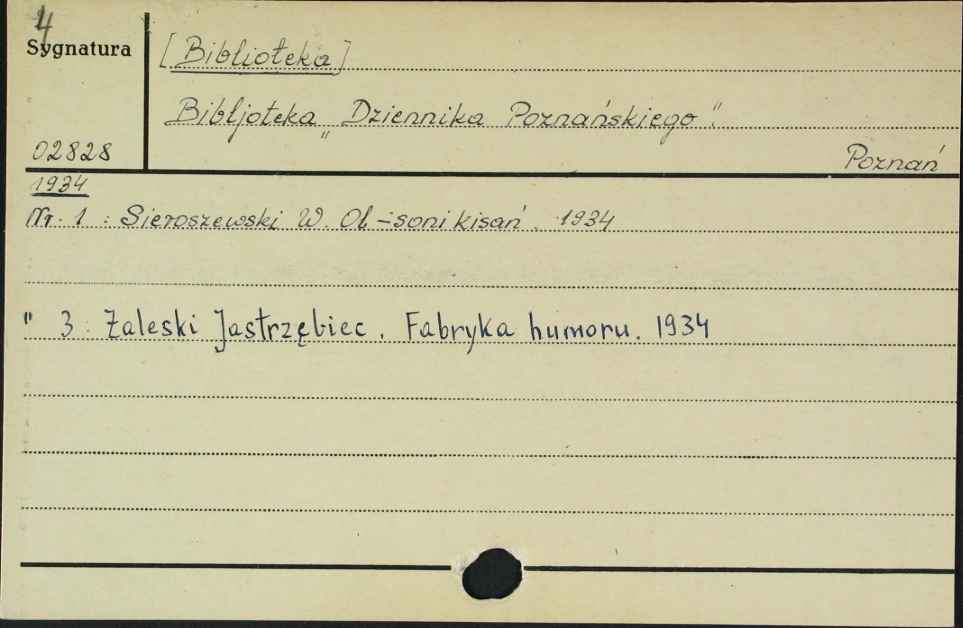 4
Sygnatura
[Biblioteka]
Bibljoteka „Dziennika Poznańskiego".
02828
Poznań
1934
Nr. 1 : Sieroszewski W. Ol-soni kisań. 1934
" 3 : Zaleski Jastrzębiec. Fabryka humoru. 1934